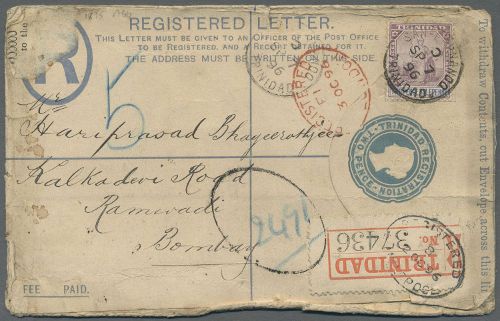 REGISTERED LETTER.
THIS LETTER MUST BE GIVEN TO AN OFFICER OF THE POST OFFICE
TO BE REGISTERED, AND A RECEIPT OBTAINED FOR IT.
THE ADDRESS MUST BE WRITTEN ON THIS SIDE.
R
5
TRINIDAD
TRINIDAD
SP 96
REGISTERED
3 OC 96
TRINIDAD REGISTRATION
TWO PENCE
Mr
Hariprasad Bhageerothjee
Kalkadevi Road
Ramwadi
Bombay
2491
TRINIDAD
No. 37436
REGISTERED
FEE PAID.
To withdraw Contents, cut Envelope across this li
to the